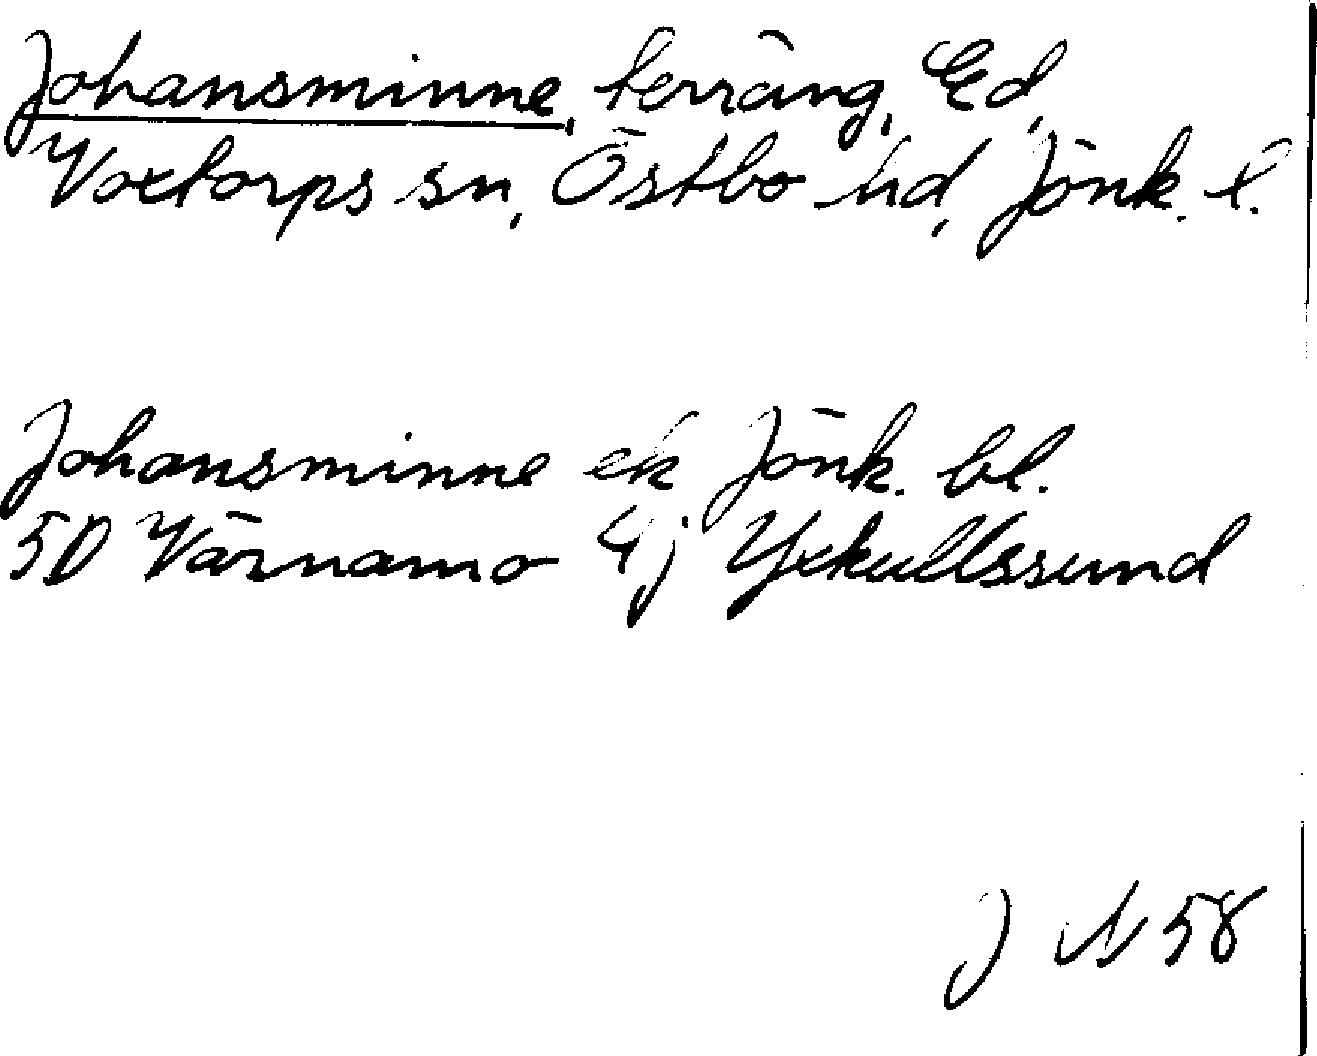 Johansminne, terräng, Ed,
Voxtorps sn, Östbo hd, Jönk. l.
Johansminne ek Jönk. bl.
5D Värnamo 4j Yxkullssund
J N 58